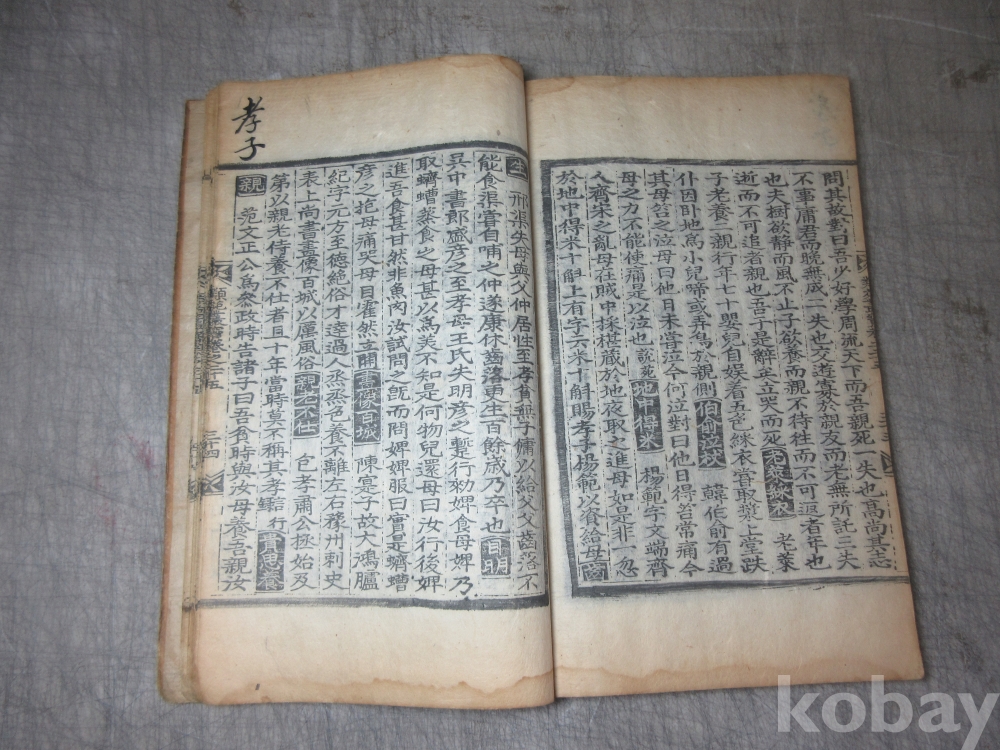 問其故對曰吾少好學周流天下而吾親死一失也高尚其志
不事庸君而晚無成二失也交遊寡於親友而老無所託三失
也夫樹欲静而風不止子欲養而親不待徃而不可返者年也
逝而不可追者親也吾于是辭矣立哭而死 老萊
子老養二親行年七十嬰兒自娱着五色綵衣嘗取漿上堂跌
仆因卧地爲小兒啼或弄烏於親側伯俞泣杖 韓伯俞有過
其母笞之泣母曰他日未甞泣今何泣對曰他日得笞常痛今
母之力不能使痛是以泣也說苑地中得米 楊範字文端齊
人齊宋之亂母在賊中採椹藏於地夜取之進母如是非一忽
於地中得米十斛上有字六米十斛賜孝子楊範以資給母齒
孝子
生 邢渠失母與父仲居性至孝貧無子傭以給父父齒落不
能食渠嘗自哺之仲遂康休齒落更生百餘歲乃卒也目明
吴中書郎盛彦之至孝母王氏失明彦之蹔行勑婢食母婢乃
取蠐螬蒸食之母甚以爲美不知是何物兒還母曰汝行後婢
進吾食甚甘然非魚肉汝試問之旣而問婢婢服曰實是蠐螬
彦之抱母痛哭母目霍然立開畫像百城 陳寔子故大鴻臚
紀字元方至德絶俗才逹過人烝烝色養不離左右豫州刺史
表上尚書畫像百城以厲風俗親老不仕 包孝肅公拯始及
第以親老侍養不仕者且十年當時莫不稱其孝 行貴思養
親 范文正公爲叅政時告諸子曰吾貧時與汝母養吾親汝
三十四
kobay